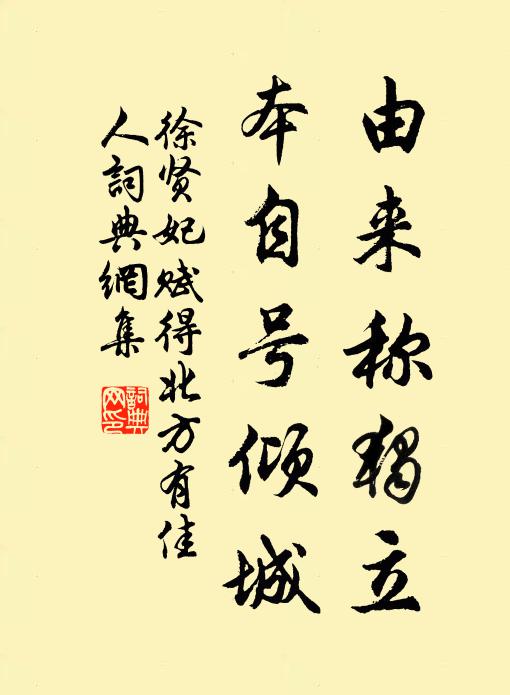 由来称独立
本自号倾城
徐贤妃赋得北方有佳
人詞典網集
詞典
网印